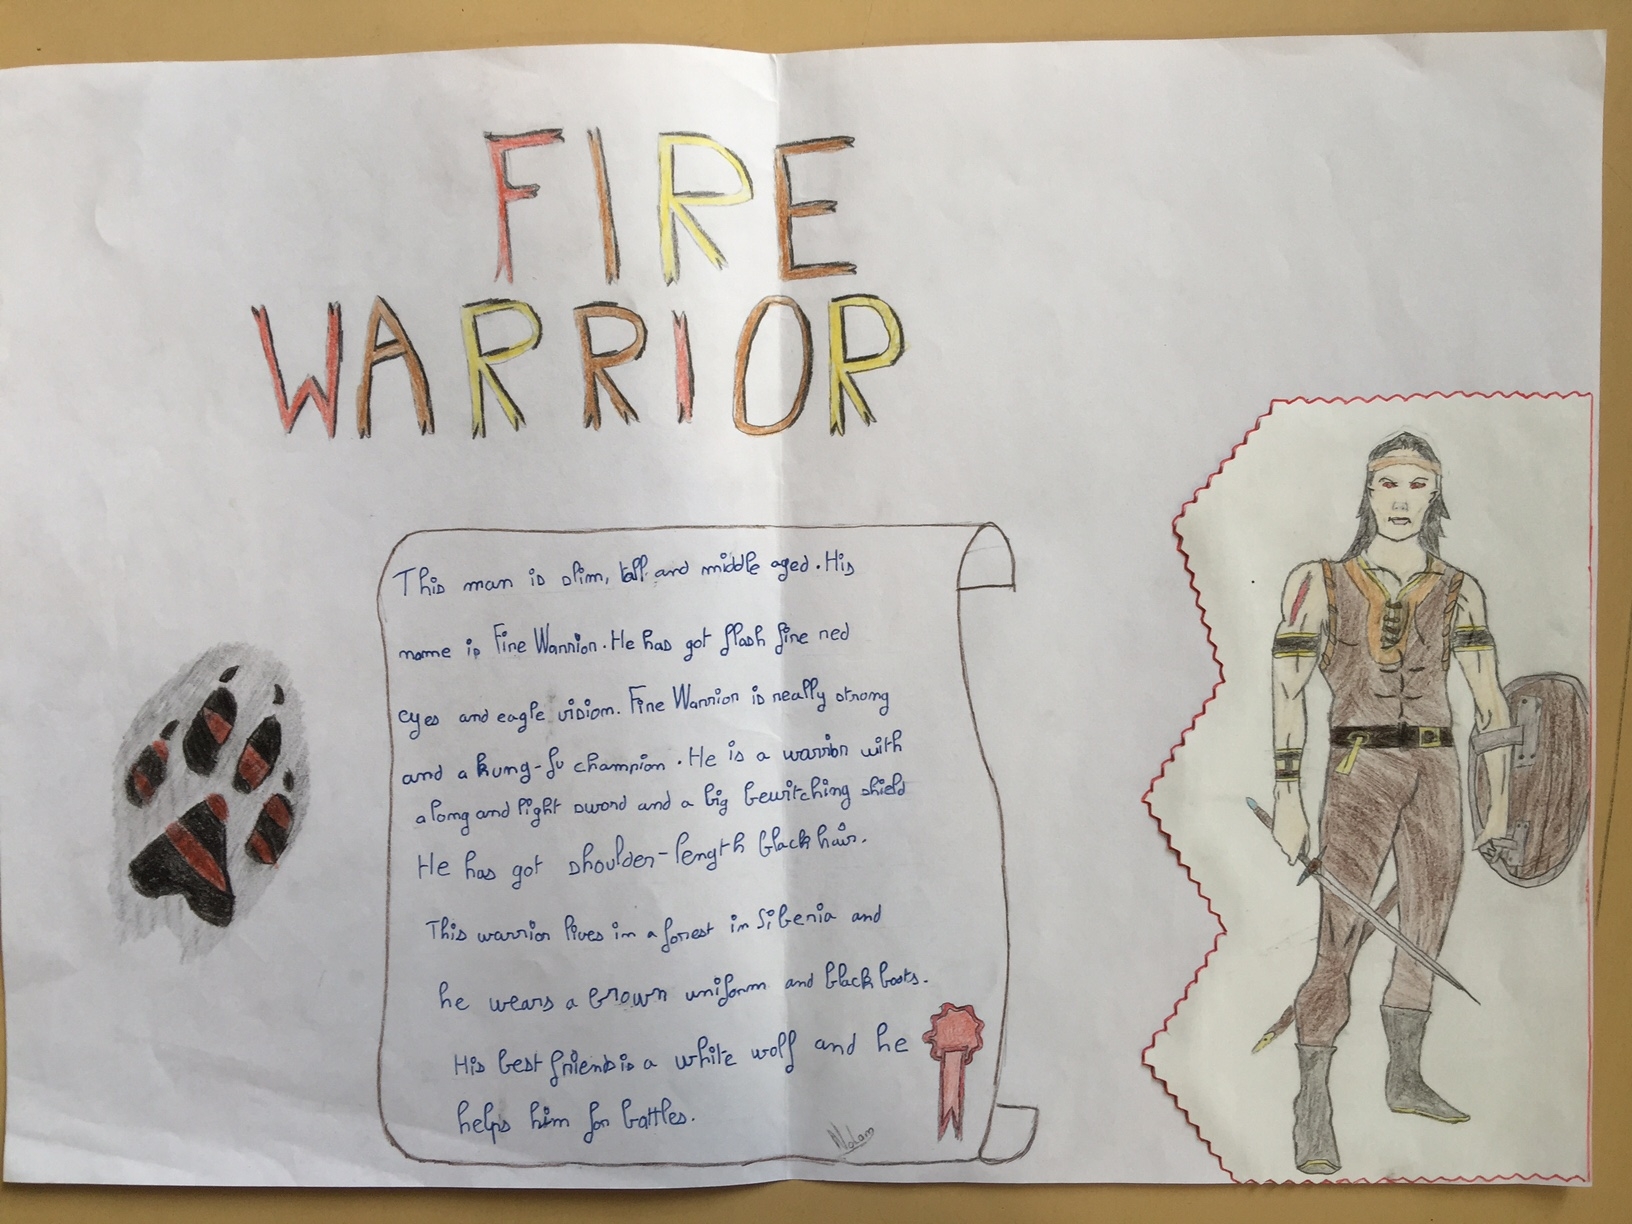 FIRE
WARRIOR
This man is slim, tall and middle aged. His
name is Fire Warrior. He has got flash fire red
eyes and eagle vision. Fire Warrior is really strong
and a kung-fu champion. He is a warrior with
a long and light sword and a big bewitching shield
He has got shoulder-length black hair.
This warrior lives in a forest in Siberia and
he wears a brown uniform and black boots.
His best friend is a white wolf and he
helps him for battles.